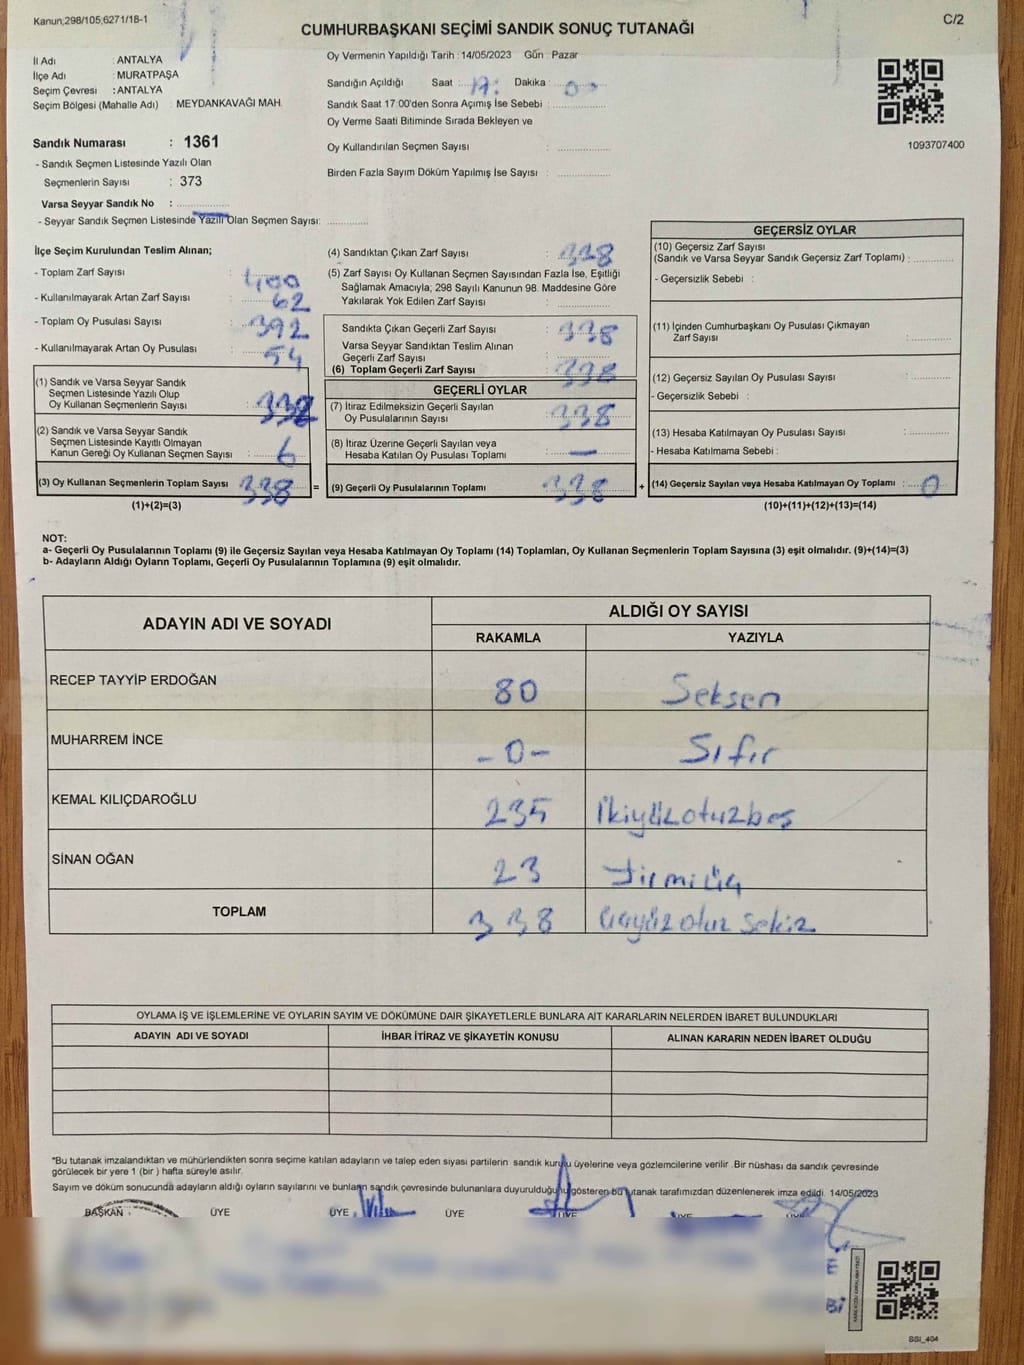 Kanun;298/105;6271/18-1
C/2
CUMHURBAŞKANI SEÇİMİ SANDIK SONUÇ TUTANAĞI
İl Adı : ANTALYA
İlçe Adı : MURATPAŞA
Seçim Çevresi : ANTALYA
Seçim Bölgesi (Mahalle Adı) : MEYDANKAVAĞI MAH.
Sandık Numarası : 1361
- Sandık Seçmen Listesinde Yazılı Olan
Seçmenlerin Sayısı : 373
Varsa Seyyar Sandık No :
- Seyyar Sandık Seçmen Listesinde Yazılı Olan Seçmen Sayısı:
Oy Vermenin Yapıldığı Tarih : 14/05/2023 Gün : Pazar
Sandığın Açıldığı Saat : 17: Dakika : 00
Sandık Saat 17:00'den Sonra Açımış İse Sebebi :
Oy Verme Saati Bitiminde Sırada Bekleyen ve
Oy Kullandırılan Seçmen Sayısı :
Birden Fazla Sayım Döküm Yapılmış İse Sayısı :
1093707400
İlçe Seçim Kurulundan Teslim Alınan;
- Toplam Zarf Sayısı : 400
- Kullanılmayarak Artan Zarf Sayısı : 62
- Toplam Oy Pusulası Sayısı : 392
- Kullanılmayarak Artan Oy Pusulası : 54
(1) Sandık ve Varsa Seyyar Sandık
Seçmen Listesinde Yazılı Olup
Oy Kullanan Seçmenlerin Sayısı : 332
(2) Sandık ve Varsa Seyyar Sandık
Seçmen Listesinde Kayıtlı Olmayan
Kanun Gereği Oy Kullanan Seçmen Sayısı : 6
(3) Oy Kullanan Seçmenlerin Toplam Sayısı : 338
(1)+(2)=(3)
=
(4) Sandıktan Çıkan Zarf Sayısı : 338
(5) Zarf Sayısı Oy Kullanan Seçmen Sayısından Fazla İse, Eşitliği
Sağlamak Amacıyla; 298 Sayılı Kanunun 98. Maddesine Göre
Yakılarak Yok Edilen Zarf Sayısı :
Sandıkta Çıkan Geçerli Zarf Sayısı : 338
Varsa Seyyar Sandıktan Teslim Alınan
Geçerli Zarf Sayısı :
(6) Toplam Geçerli Zarf Sayısı : 338
GEÇERLİ OYLAR
(7) İtiraz Edilmeksizin Geçerli Sayılan
Oy Pusulalarının Sayısı : 338
(8) İtiraz Üzerine Geçerli Sayılan veya
Hesaba Katılan Oy Pusulası Toplamı : —
(9) Geçerli Oy Pusulalarının Toplamı : 338
+
GEÇERSİZ OYLAR
(10) Geçersiz Zarf Sayısı
(Sandık ve Varsa Seyyar Sandık Geçersiz Zarf Toplamı) :
- Geçersizlik Sebebi :
(11) İçinden Cumhurbaşkanı Oy Pusulası Çıkmayan
Zarf Sayısı :
(12) Geçersiz Sayılan Oy Pusulası Sayısı :
- Geçersizlik Sebebi :
(13) Hesaba Katılmayan Oy Pusulası Sayısı :
- Hesaba Katılmama Sebebi :
(14) Geçersiz Sayılan veya Hesaba Katılmayan Oy Toplamı : 0
(10)+(11)+(12)+(13)=(14)
NOT:
a- Geçerli Oy Pusulalarının Toplamı (9) ile Geçersiz Sayılan veya Hesaba Katılmayan Oy Toplamı (14) Toplamları, Oy Kullanan Seçmenlerin Toplam Sayısına (3) eşit olmalıdır. (9)+(14)=(3)
b- Adayların Aldığı Oyların Toplamı, Geçerli Oy Pusulalarının Toplamına (9) eşit olmalıdır.
ADAYIN ADI VE SOYADI
ALDIĞI OY SAYISI
RAKAMLA YAZIYLA
RECEP TAYYİP ERDOĞAN 80 Seksen
MUHARREM İNCE -0- Sıfır
KEMAL KILIÇDAROĞLU 235 İkiyüzotuzbeş
SİNAN OĞAN 23 Yirmiüç
TOPLAM 338 üçyüz otuz sekiz
OYLAMA İŞ VE İŞLEMLERİNE VE OYLARIN SAYIM VE DÖKÜMÜNE DAİR ŞİKAYETLERLE BUNLARA AİT KARARLARIN NELERDEN İBARET BULUNDUKLARI
ADAYIN ADI VE SOYADI İHBAR İTİRAZ VE ŞİKAYETİN KONUSU ALINAN KARARIN NEDEN İBARET OLDUĞU
*Bu tutanak imzalandıktan ve mühürlendikten sonra seçime katılan adayların ve talep eden siyasi partilerin sandık kurulu üyelerine veya gözlemcilerine verilir .Bir nüshası da sandık çevresinde
görülecek bir yere 1 (bir ) hafta süreyle asılır.
Sayım ve döküm sonucunda adayların aldığı oyların sayılarını ve bunların sandık çevresinde bulunanlara duyurulduğunu gösteren bu tutanak tarafımızdan düzenlenerek imza edildi. 14/05/2023
BAŞKAN ÜYE ÜYE ÜYE ÜYE ÜYE
SSI_404